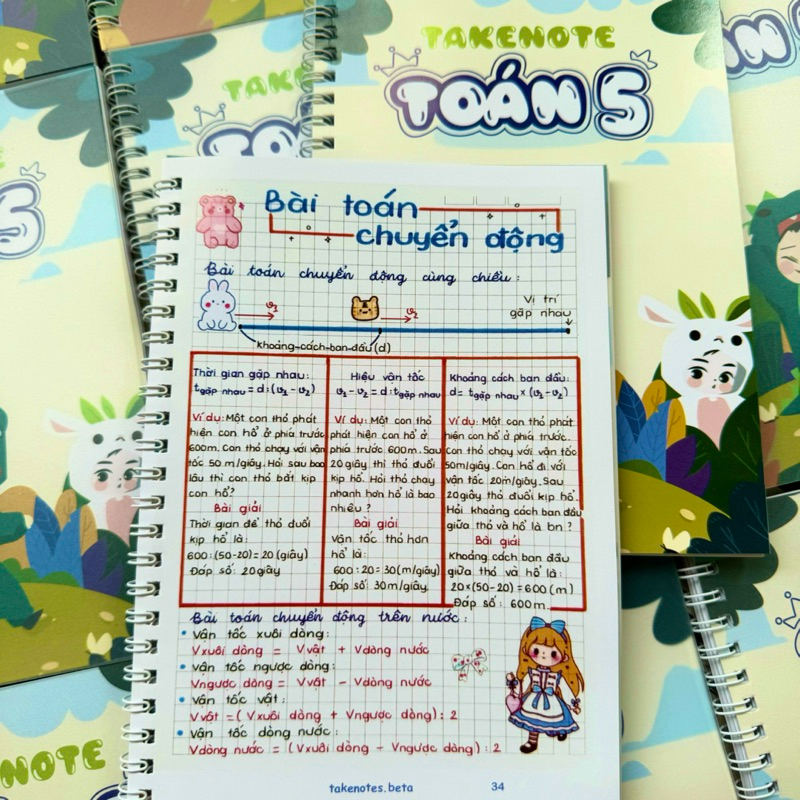 TAKENOTE
TOÁN 5
TAKEN
5
Bài toán
chuyển động
Bài toán chuyển động cùng chiều:
v₁
v₂
Vị trí
gặp nhau
khoảng cách ban đầu (d)
Thời gian gặp nhau:
t gặp nhau = d : (v₁ - v₂)
Ví dụ: Một con thỏ phát
hiện con hổ ở phía trước
600m. Con thỏ chạy với vận
tốc 50 m/giây. Hỏi sau bao
lâu thì con thỏ bắt kịp
con hổ?
Bài giải
Thời gian để thỏ đuổi
kịp hổ là:
600 : (50-20) = 20 (giây)
Đáp số: 20 giây
Hiệu vận tốc
v₁ - v₂ = d : t gặp nhau
Ví dụ: Một con thỏ
phát hiện con hổ ở
phía trước 600m. Sau
20 giây thì thỏ đuổi
kịp hổ. Hỏi thỏ chạy
nhanh hơn hổ là bao
nhiêu?
Bài giải
Vận tốc thỏ hơn
hổ là:
600 : 20 = 30 (m/giây)
Đáp số: 30m/giây.
Khoảng cách ban đầu:
d = t gặp nhau × (v₁ - v₂)
Ví dụ: Một con thỏ phát
hiện con hổ ở phía trước.
Con thỏ chạy với vận tốc
50m/giây. Con hổ đi với
vận tốc 20m/giây. Sau
20 giây thỏ đuổi kịp hổ.
Hỏi khoảng cách ban đầu
giữa thỏ và hổ là bn?
Bài giải
Khoảng cách ban đầu
giữa thỏ và hổ là:
20 × (50-20) = 600 (m)
Đáp số: 600m.
Bài toán chuyển động trên nước:
• Vận tốc xuôi dòng:
Vxuôi dòng = Vvật + Vdòng nước
• Vận tốc ngược dòng:
Vngược dòng = Vvật - Vdòng nước
• Vận tốc vật:
Vvật = (Vxuôi dòng + Vngược dòng) : 2
• Vận tốc dòng nước:
Vdòng nước = (Vxuôi dòng - Vngược dòng) : 2
takenotes.beta
34
ENOTE